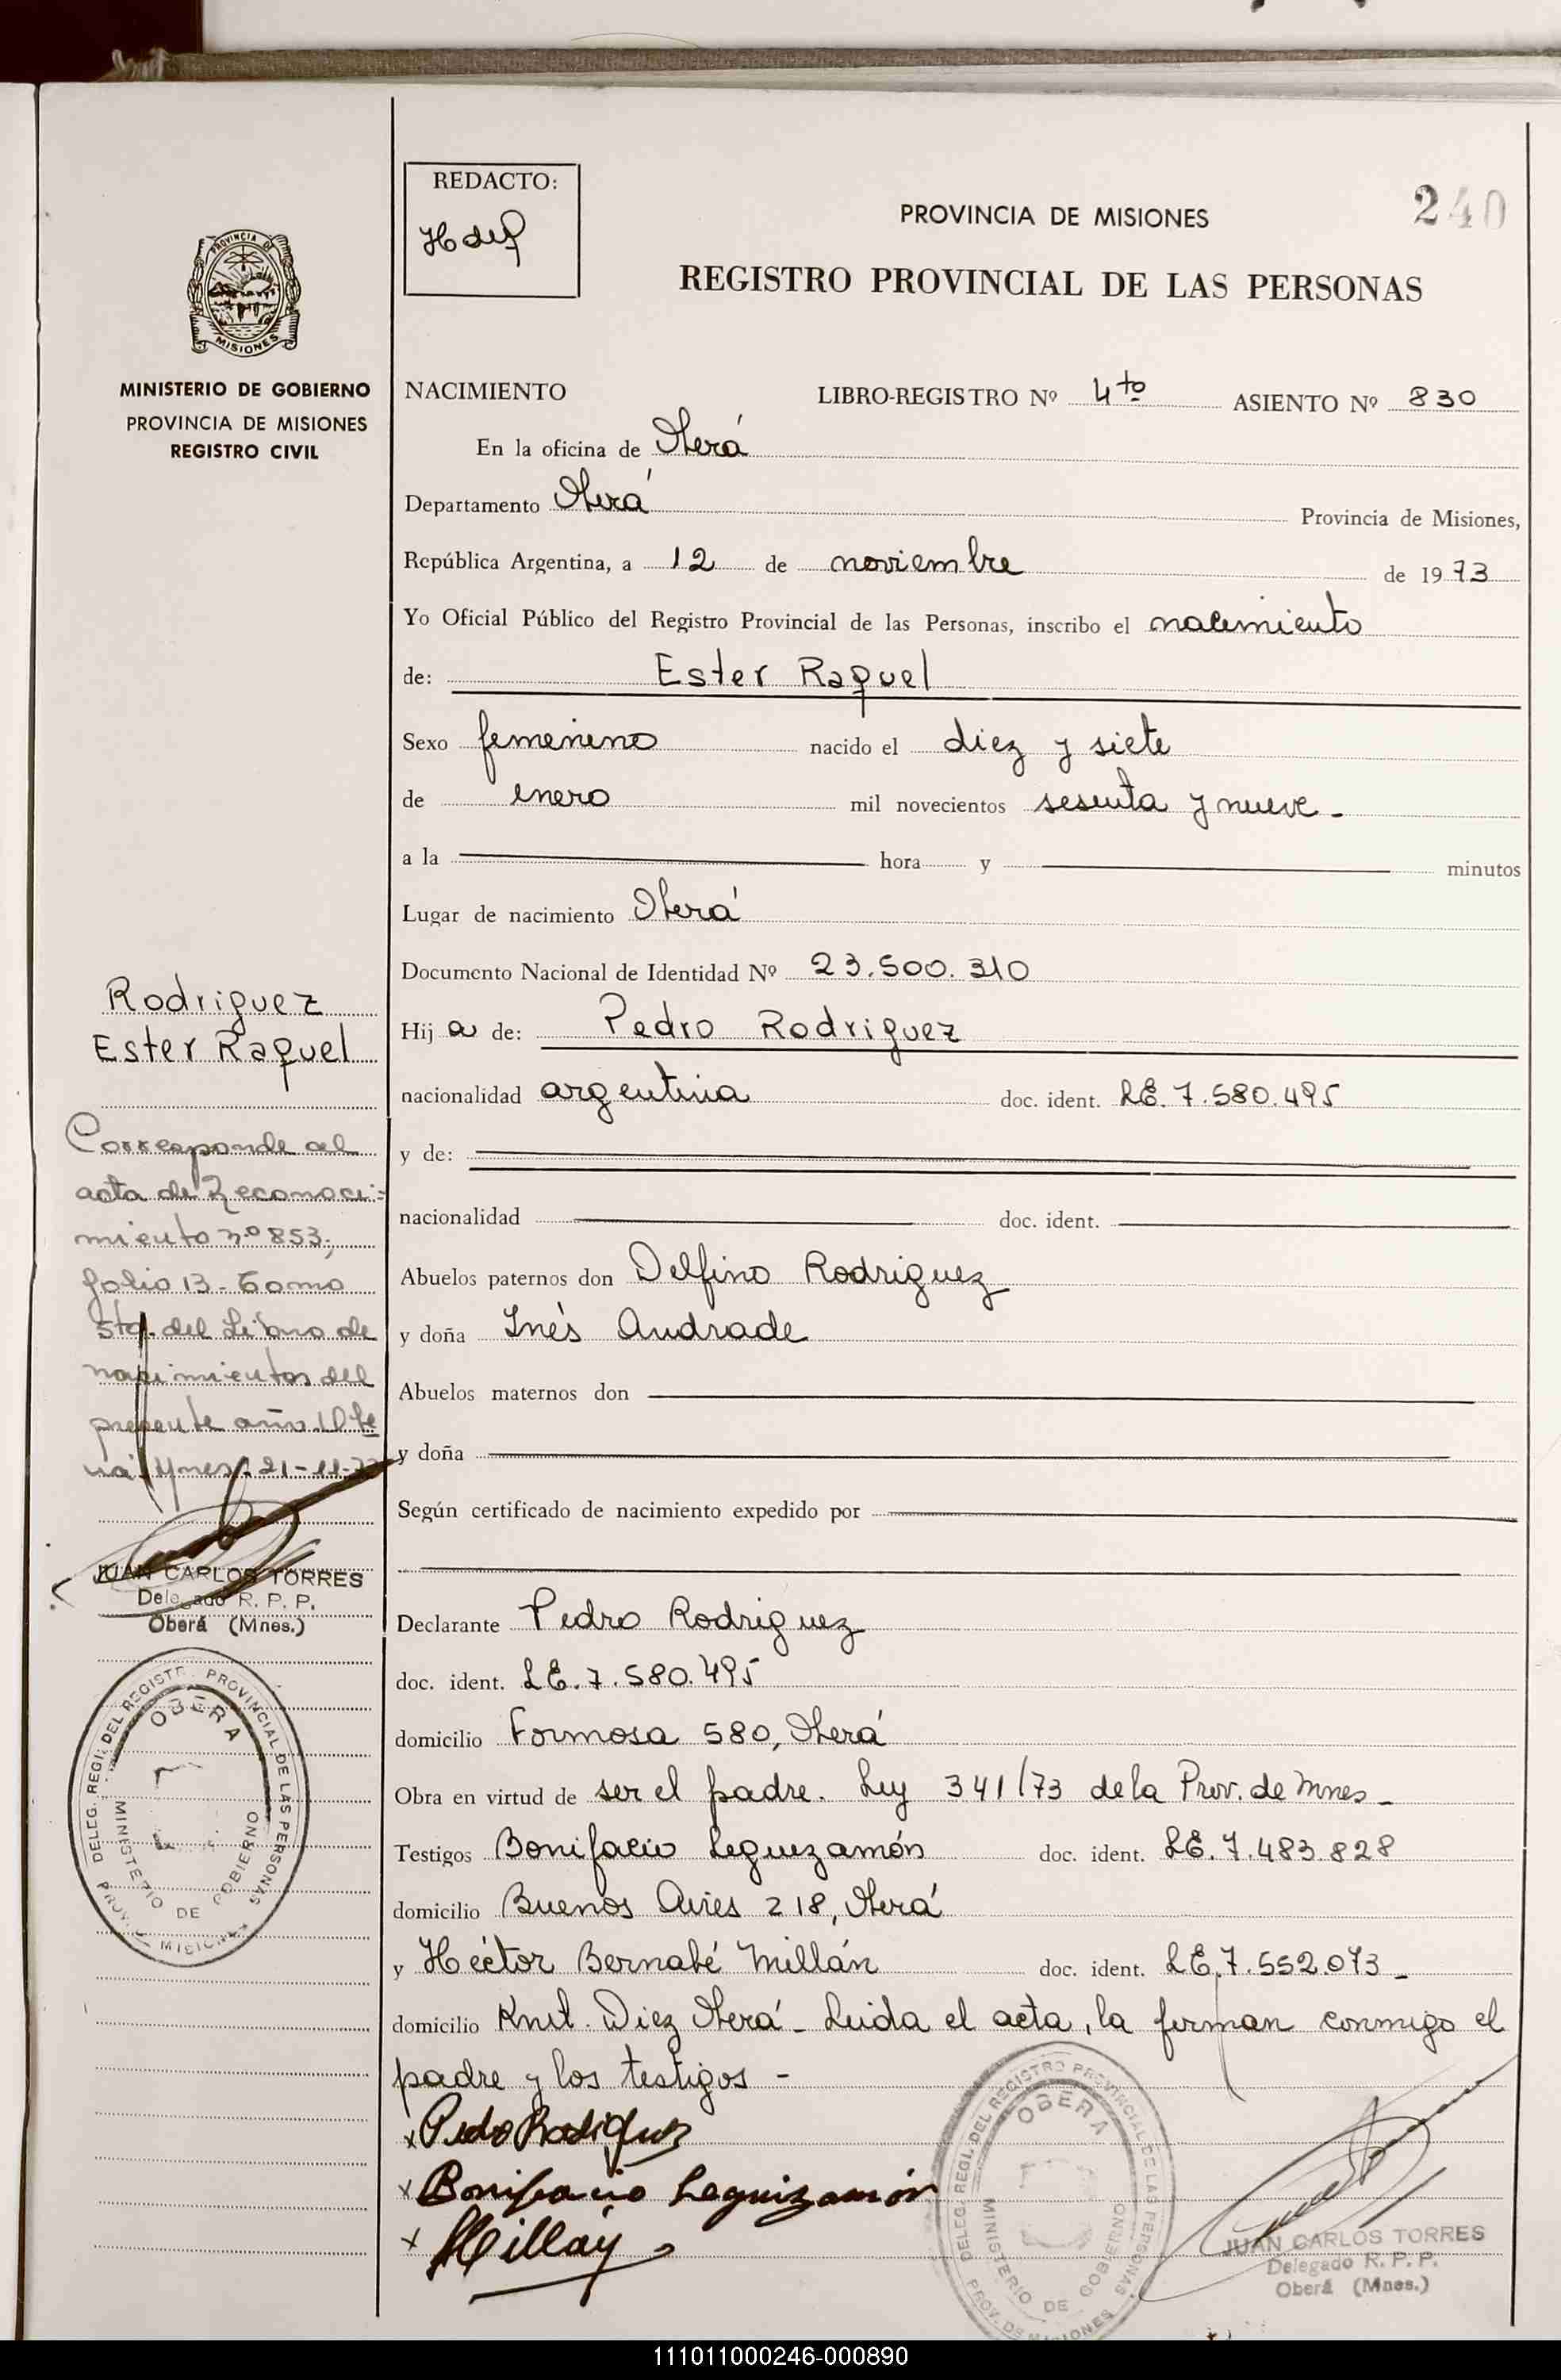 REDACTO:
PROVINCIA DE MISIONES
240
REGISTRO PROVINCIAL DE LAS PERSONAS
PROVINCIA DE
MISIONES
MINISTERIO DE GOBIERNO
PROVINCIA DE MISIONES
REGISTRO CIVIL
NACIMIENTO LIBRO-REGISTRO Nº 4to ASIENTO Nº 830
En la oficina de Oberá
Departamento Oberá Provincia de Misiones,
República Argentina, a 12 de noviembre de 1973
Yo Oficial Público del Registro Provincial de las Personas, inscribo el nacimiento
de: Ester Raquel
Sexo femenino nacido el diez y siete
de enero mil novecientos sesenta y nueve -
a la hora y minutos
Lugar de nacimiento Oberá
Documento Nacional de Identidad Nº 23.500.310
Hija de: Pedro Rodriguez
nacionalidad argentina doc. ident. LE. 7.580.495
y de:
nacionalidad doc. ident.
Abuelos paternos don Delfino Rodriguez
y doña Inés Andrade
Abuelos maternos don
y doña
Según certificado de nacimiento expedido por
Declarante Pedro Rodriguez
doc. ident. LE. 7.580.495
domicilio Formosa 580, Oberá
Obra en virtud de ser el padre. Ley 341/73 de la Prov. de Mnes -
Testigos Bonifacio Leguizamón doc. ident. LE. 7.483.828
domicilio Buenos Aires 218, Oberá
y Héctor Bernabé Millán doc. ident. LE. 7.552.073 -
domicilio Knil. Diez Oberá - Leida el acta, la firman conmigo el
padre y los testigos -
x Pedro Rodriguez
x Bonifacio Leguizamón
x Millán
Rodriguez
Ester Raquel
Corresponde al
acta de Reconoci=
miento nº 853,
folio 13 - Tomo
5to. del Libro de
nacimientos del
presente año. Obe
rá Mnes. 21-11-73
JUAN CARLOS TORRES
Delegado R. P. P.
Oberá (Mnes.)
DELEG. REGI. DEL REGISTR. PROVINCIAL DE LAS PERSONAS
OBERA
MINISTERIO DE GOBIERNO
PROV. MISIONES
DELEG. REGI. DEL REGISTRO PROVINCIAL DE LAS PERSONAS
OBERA
MINISTERIO DE GOBIERNO
PROV. DE MISIONES
JUAN CARLOS TORRES
Delegado R. P. P.
Oberá (Mnes.)
111011000246-000890